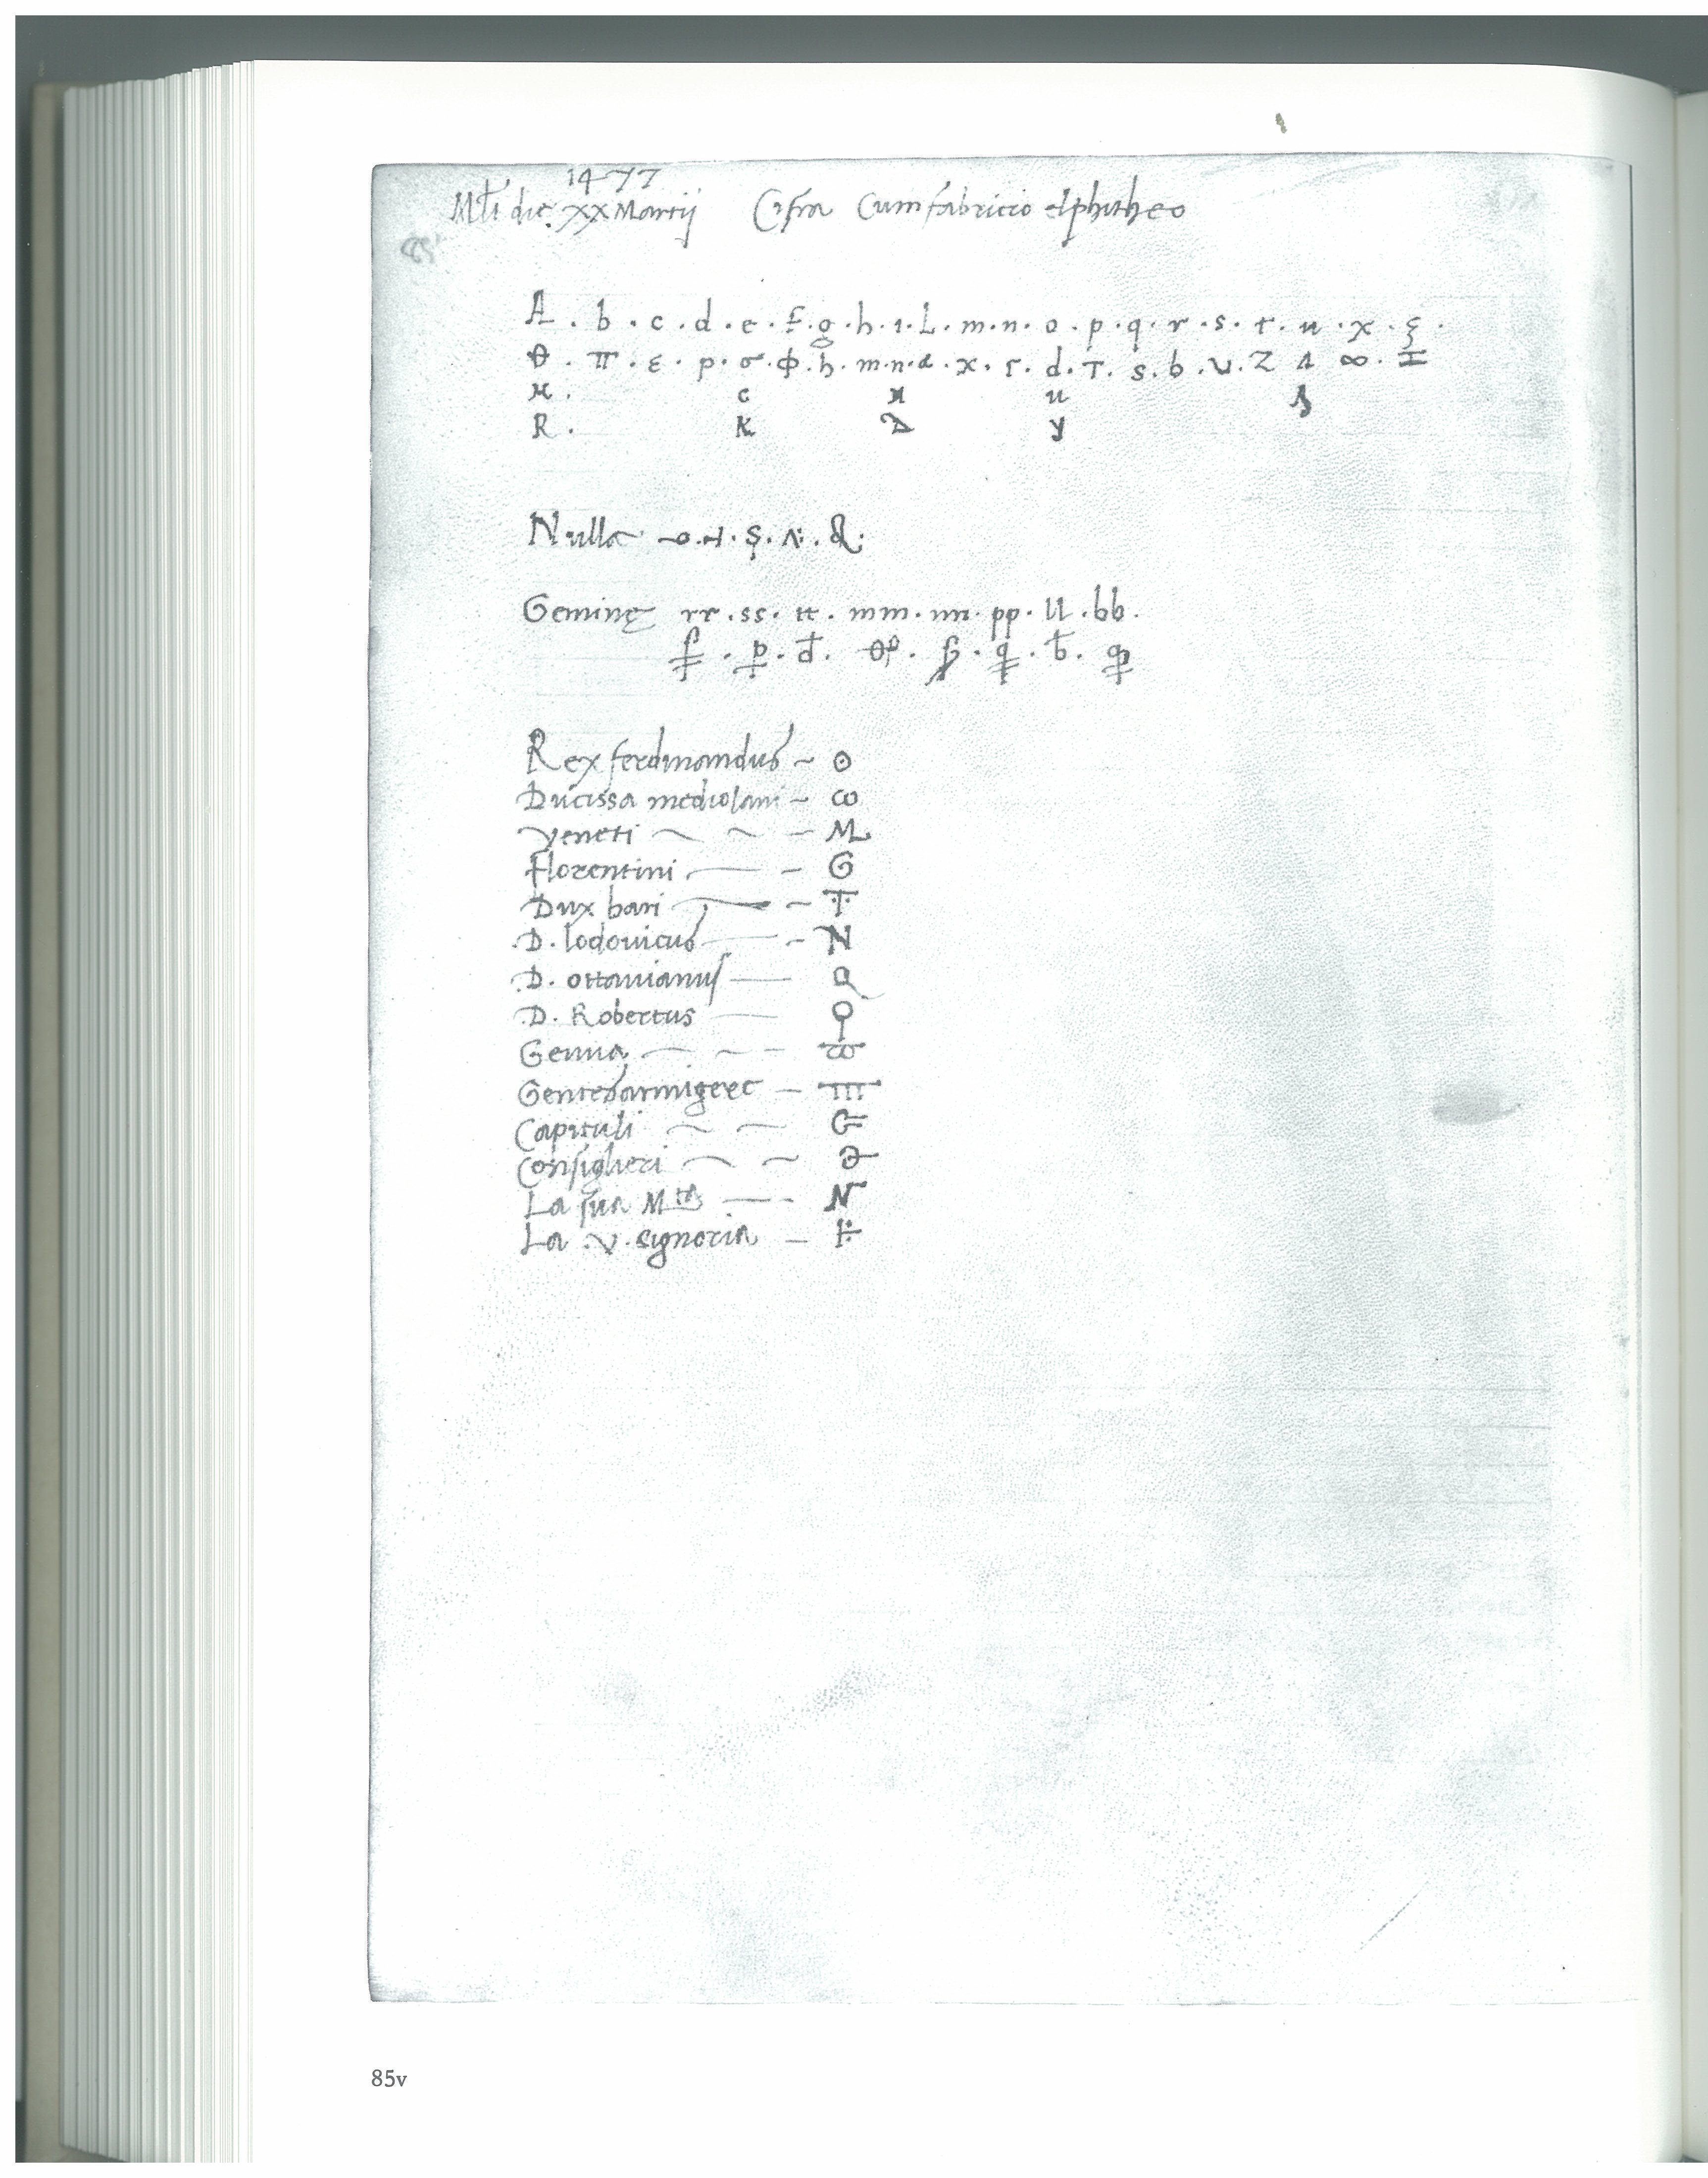 1477
Mli die XX Martij Cifra Cum fabricio elphitheo
85
A . b . c . d . e . f . g . h . i . L . m . n . o . p . q . r . s . t . u . x . ξ .
θ . π . ε . p . σ . ϕ . h . m . n . a . x . r . d . T . s . b . v . Z Δ ∞ . I
c u
R . K y
Nulla
Geminę rr . ss . tt . mm . nn . pp . ll . bb .
Rex ferdinandus ~ ⊙
Ducissa mediolani ~ ω
Veneti ~ ~ – M
Florentini — – G
Dux bari — – T
.D. lodovicus — – N
.D. ottavianus —
.D. Robertus —
Genua — ~ –
Gentes armigere —
Capituli ~ —
Consiglieri ~ ~
La sua Mtà — – N
La .v. signoria –
85v